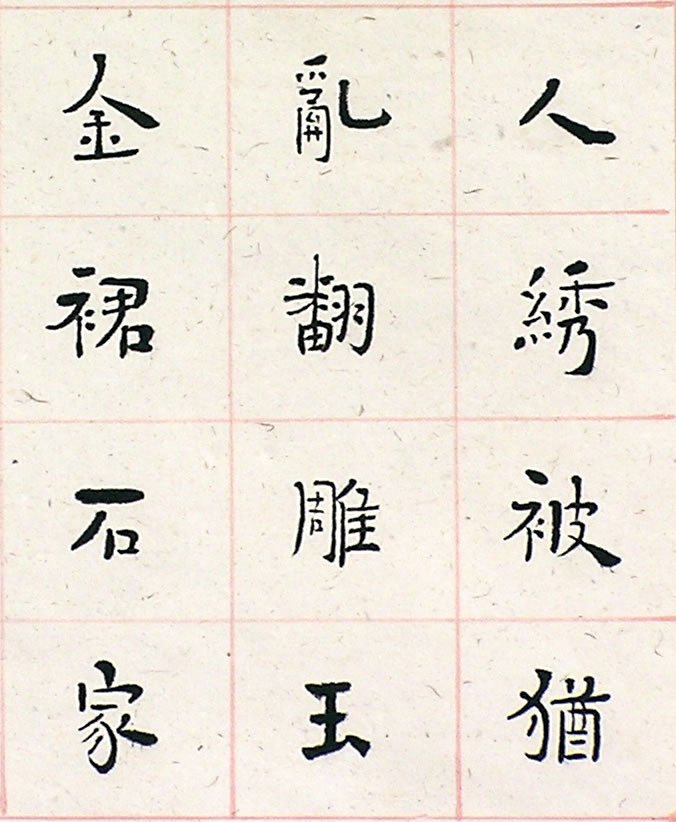 人綉被猶
亂翻雕玉
金裙石家